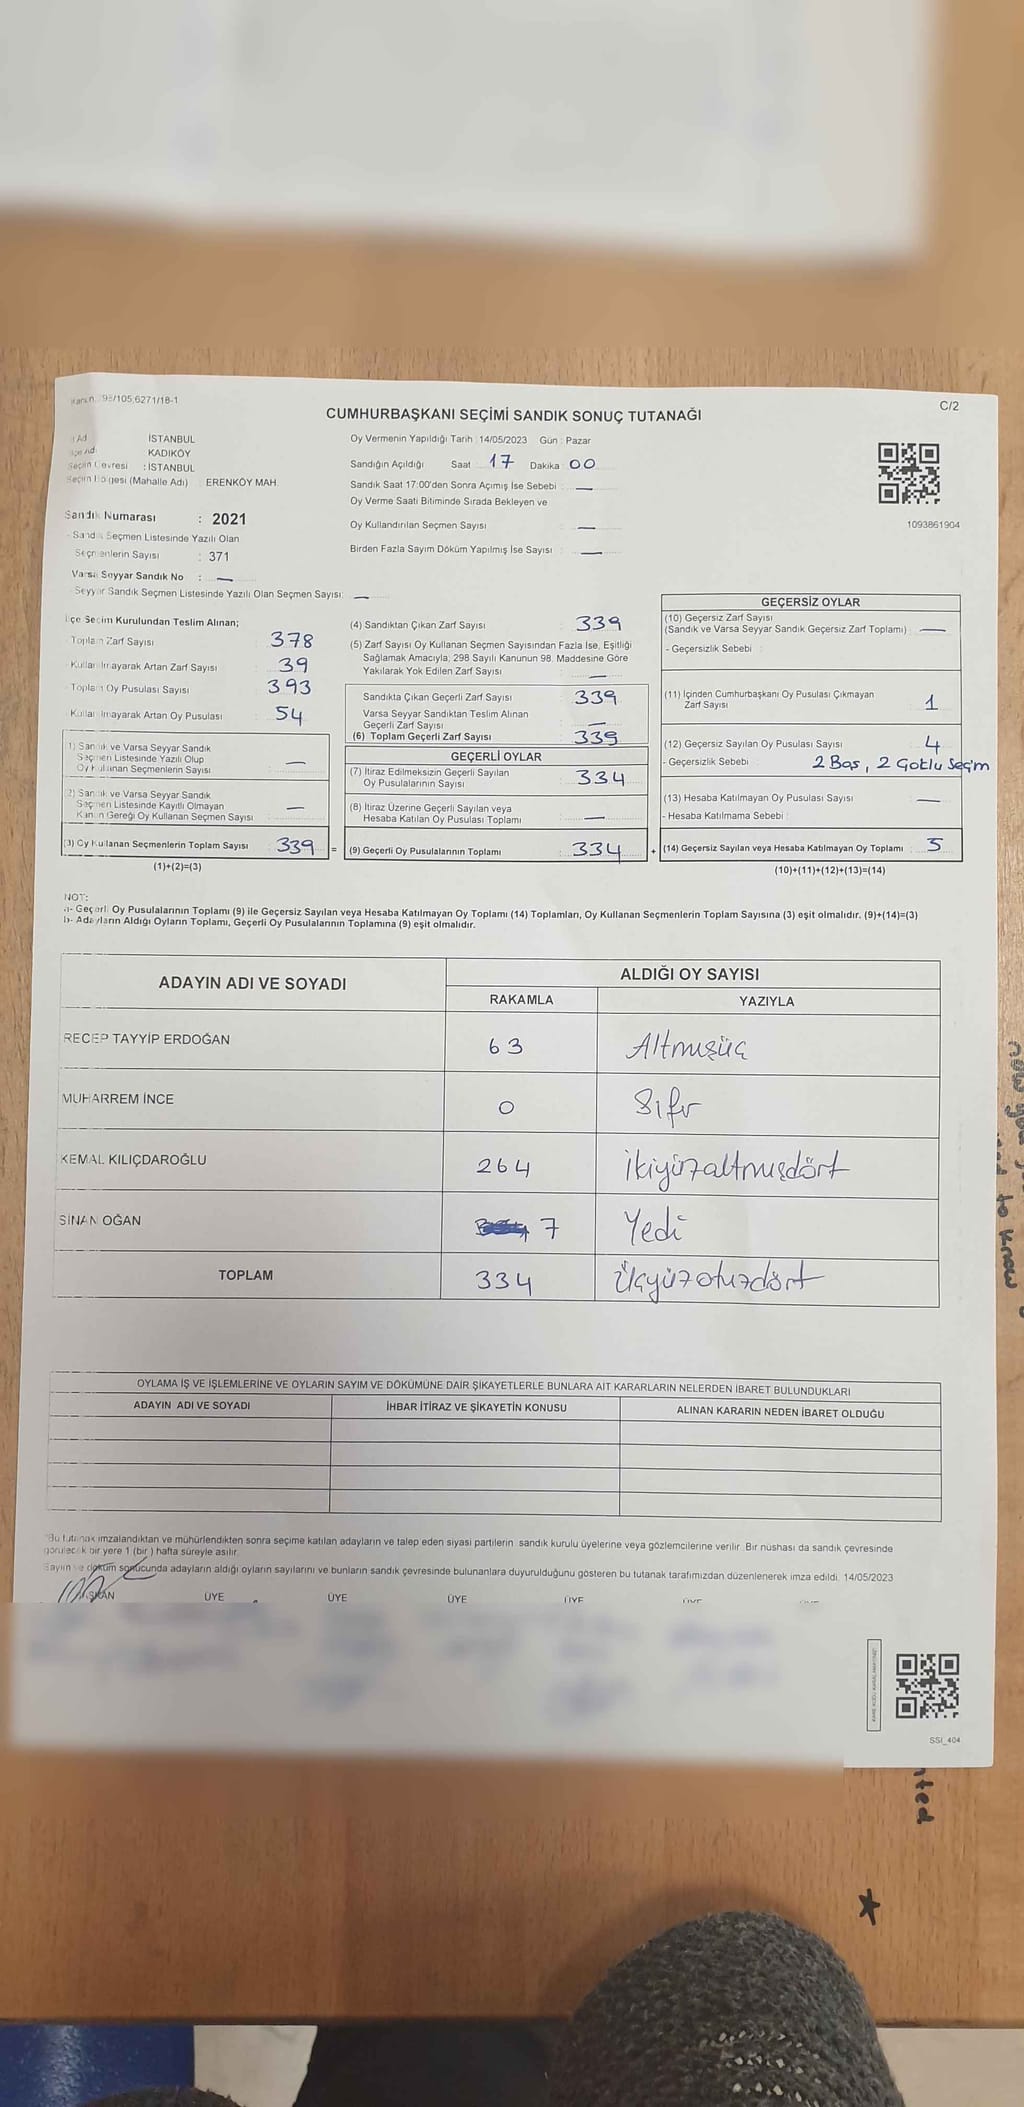 Kanun: 98/105,6271/18-1
C/2
CUMHURBAŞKANI SEÇİMİ SANDIK SONUÇ TUTANAĞI
İl Adı İSTANBUL
İlçe Adı KADIKÖY
Seçim Çevresi : İSTANBUL
Seçim Bölgesi (Mahalle Adı) : ERENKÖY MAH.
Oy Vermenin Yapıldığı Tarih : 14/05/2023 Gün : Pazar
Sandığın Açıldığı Saat 17 Dakika 00
Sandık Saat 17:00'den Sonra Açımış İse Sebebi : —
Oy Verme Saati Bitiminde Sırada Bekleyen ve
Oy Kullandırılan Seçmen Sayısı : —
Birden Fazla Sayım Döküm Yapılmış İse Sayısı : —
1093861904
Sandık Numarası : 2021
- Sandık Seçmen Listesinde Yazılı Olan
Seçmenlerin Sayısı : 371
Varsa Seyyar Sandık No : —
- Seyyar Sandık Seçmen Listesinde Yazılı Olan Seçmen Sayısı: —
İlçe Seçim Kurulundan Teslim Alınan;
- Toplam Zarf Sayısı : 378
- Kullanılmayarak Artan Zarf Sayısı : 39
- Toplam Oy Pusulası Sayısı : 393
- Kullanılmayarak Artan Oy Pusulası : 54
(1) Sandık ve Varsa Seyyar Sandık
Seçmen Listesinde Yazılı Olup
Oy Kullanan Seçmenlerin Sayısı : —
(2) Sandık ve Varsa Seyyar Sandık
Seçmen Listesinde Kayıtlı Olmayan
Kanun Gereği Oy Kullanan Seçmen Sayısı : —
(3) Oy Kullanan Seçmenlerin Toplam Sayısı : 339
(1)+(2)=(3)
(4) Sandıktan Çıkan Zarf Sayısı : 339
(5) Zarf Sayısı Oy Kullanan Seçmen Sayısından Fazla İse, Eşitliği
Sağlamak Amacıyla; 298 Sayılı Kanunun 98. Maddesine Göre
Yakılarak Yok Edilen Zarf Sayısı : —
Sandıkta Çıkan Geçerli Zarf Sayısı : 339
Varsa Seyyar Sandıktan Teslim Alınan
Geçerli Zarf Sayısı : —
(6) Toplam Geçerli Zarf Sayısı : 339
GEÇERLİ OYLAR
(7) İtiraz Edilmeksizin Geçerli Sayılan
Oy Pusulalarının Sayısı : 334
(8) İtiraz Üzerine Geçerli Sayılan veya
Hesaba Katılan Oy Pusulası Toplamı : —
= (9) Geçerli Oy Pusulalarının Toplamı : 334
GEÇERSİZ OYLAR
(10) Geçersiz Zarf Sayısı
(Sandık ve Varsa Seyyar Sandık Geçersiz Zarf Toplamı) : —
- Geçersizlik Sebebi :
(11) İçinden Cumhurbaşkanı Oy Pusulası Çıkmayan
Zarf Sayısı : 1
(12) Geçersiz Sayılan Oy Pusulası Sayısı : 4
- Geçersizlik Sebebi : 2 Boş, 2 Çoklu Seçim
(13) Hesaba Katılmayan Oy Pusulası Sayısı : —
- Hesaba Katılmama Sebebi :
+ (14) Geçersiz Sayılan veya Hesaba Katılmayan Oy Toplamı : 5
(10)+(11)+(12)+(13)=(14)
NOT:
a- Geçerli Oy Pusulalarının Toplamı (9) ile Geçersiz Sayılan veya Hesaba Katılmayan Oy Toplamı (14) Toplamları, Oy Kullanan Seçmenlerin Toplam Sayısına (3) eşit olmalıdır. (9)+(14)=(3)
b- Adayların Aldığı Oyların Toplamı, Geçerli Oy Pusulalarının Toplamına (9) eşit olmalıdır.
ADAYIN ADI VE SOYADI
ALDIĞI OY SAYISI
RAKAMLA YAZIYLA
RECEP TAYYİP ERDOĞAN 63 Altmışüç
MUHARREM İNCE 0 Sıfır
KEMAL KILIÇDAROĞLU 264 İkiyüzaltmışdört
SİNAN OĞAN 7 Yedi
TOPLAM 334 Üçyüzotuzdört
OYLAMA İŞ VE İŞLEMLERİNE VE OYLARIN SAYIM VE DÖKÜMÜNE DAİR ŞİKAYETLERLE BUNLARA AİT KARARLARIN NELERDEN İBARET BULUNDUKLARI
ADAYIN ADI VE SOYADI İHBAR İTİRAZ VE ŞİKAYETİN KONUSU ALINAN KARARIN NEDEN İBARET OLDUĞU
*Bu tutanak imzalandıktan ve mühürlendikten sonra seçime katılan adayların ve talep eden siyasi partilerin sandık kurulu üyelerine veya gözlemcilerine verilir. Bir nüshası da sandık çevresinde
görülecek bir yere 1 (bir) hafta süreyle asılır.
Sayım ve döküm sonucunda adayların aldığı oyların sayılarını ve bunların sandık çevresinde bulunanlara duyurulduğunu gösteren bu tutanak tarafımızdan düzenlenerek imza edildi. 14/05/2023
BAŞKAN ÜYE ÜYE ÜYE ÜYE
SSI_404
to know
nted